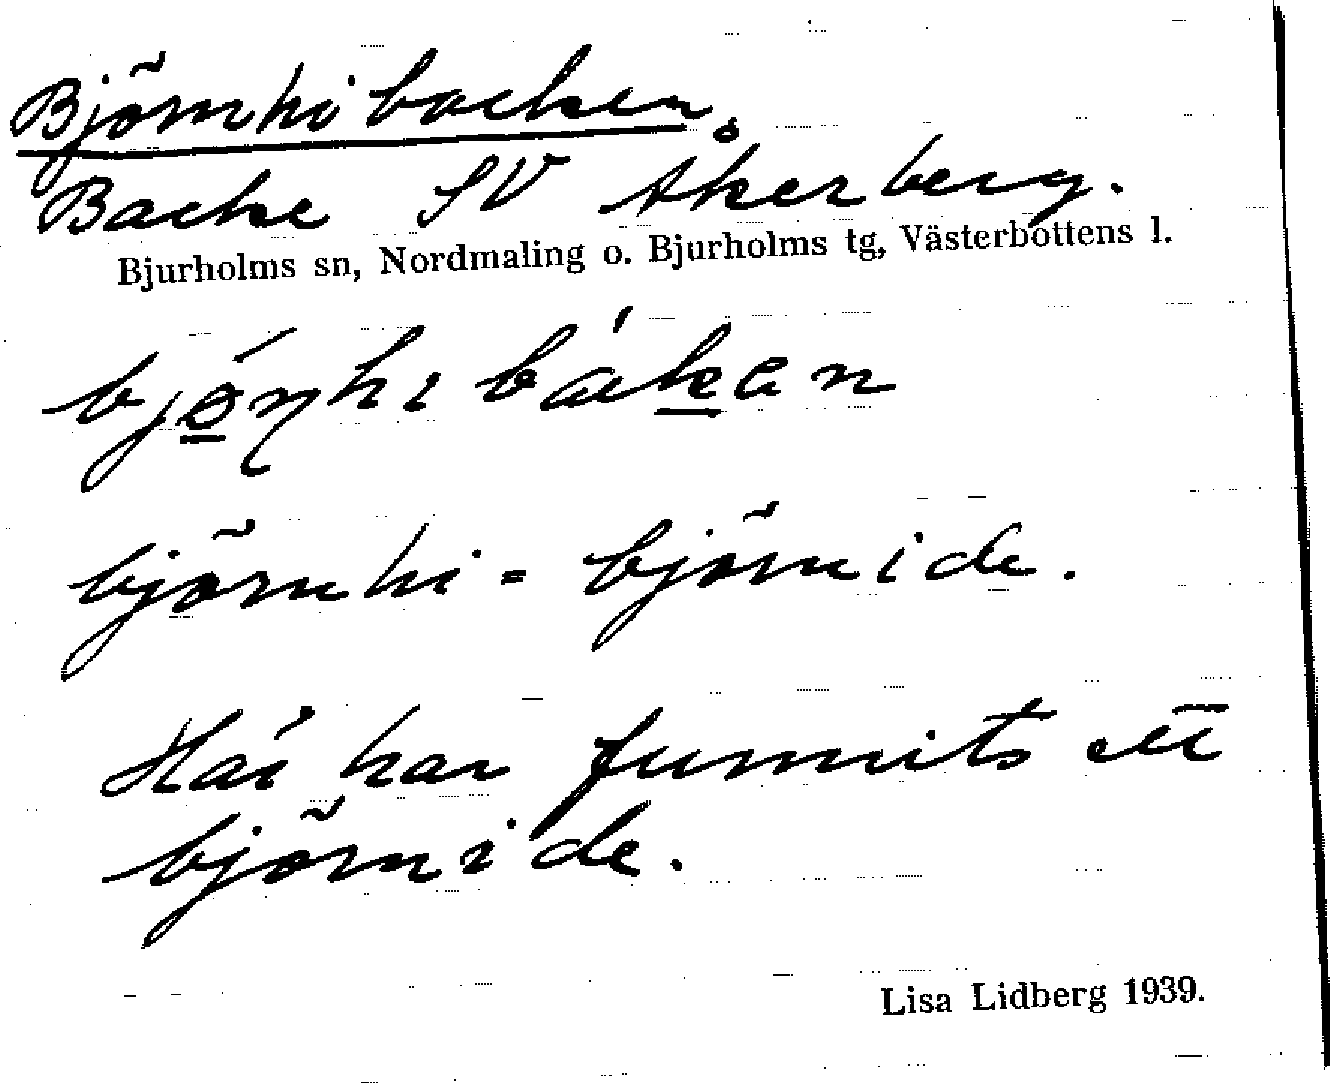 Björnhibacken
Backe SV Åkerberg.
Bjurholms sn, Nordmaling o. Bjurholms tg, Västerbottens l.
björnhi = björnide.
Här har funnits ett
björnide.
Lisa Lidberg 1939.